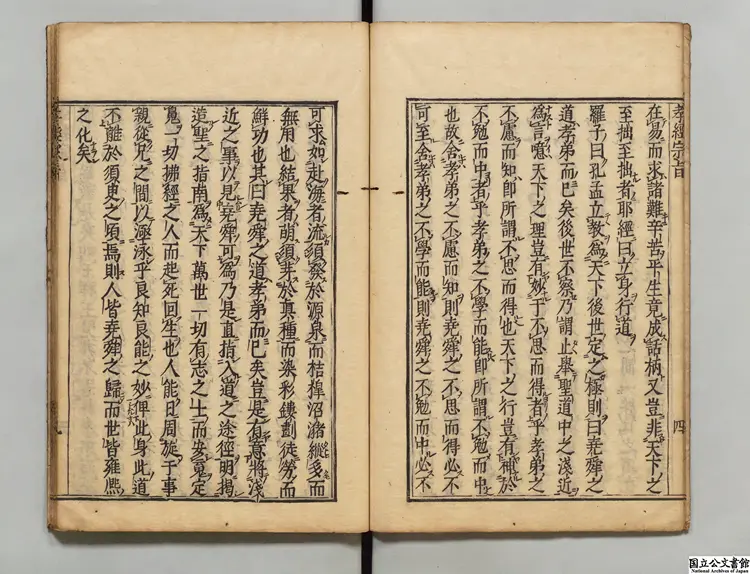 孝經宗旨 四
在易而求諸難辛苦平生竟成話柄又豈非天下之
至拙至拙者耶經曰立身行道
羅子曰孔孟立教為天下後世定之極則曰堯舜之
道孝弟而已矣後世不察乃謂止舉聖道中之淺近
為言噫天下之理豈有妙于不思而得者乎孝弟之
不慮而知即所謂不思而得也天下之行豈有神於
不勉而中者乎孝弟之不學而能即所謂不勉而中
也故舍孝弟之不慮而知則堯舜之不思而得必不
可至舍孝弟之不學而能則堯舜之不勉而中必不
可求如赴海者流須發於源泉而桔橰沼瀦縱多而
無用也結果者萌須芽於真種而染彩鏤劃徒勞而
鮮功也其曰堯舜之道孝弟而已矣豈是有意將淺
近之事以見堯舜可為乃是直指入道之途徑明揭
造聖之指南為天下萬世一切有志之士而安魂定
魄一切拂經之人而起死回生也人能日周旋于事
親從兄之間以涵泳乎良知良能之妙俾此身此道
不離於須臾之頃焉則人皆堯舜之歸而世皆雍熙
之化矣
国立公文書館
National Archives of Japan